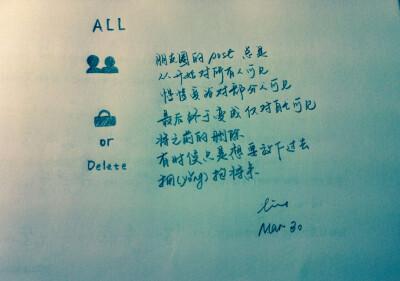 ALL
朋友圈的 post 总是
从开始对所有人可见
悄悄变为对部分人可见
最后终于变成仅对自己可见
or
将之前的删除
Delete
有时候总是想要放下过去
拥(yǒng)抱将来
Mar 30